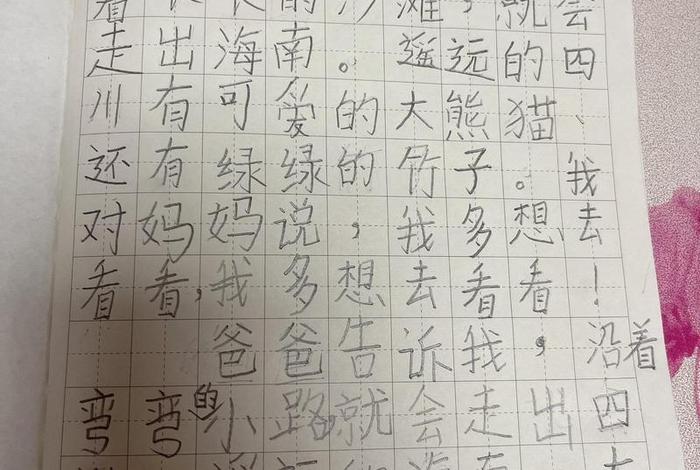 着长长的沙滩，就会
走出海南。遥远的四
川有可爱的大熊猫、
还有绿绿的竹子。我
对妈妈说，我多想、去
看看，我多想去看看！
爸爸告诉我，沿着
弯弯的小路，就会走出四